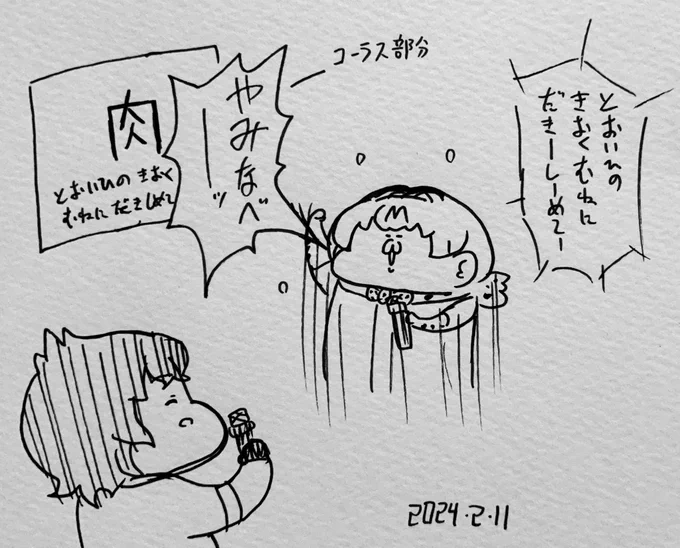 とおいひの
きおくむねに
だきーしーめてー
コーラス部分
やみなべーッ
肉
とおいひの きおく
むねに だきしめて
2024.2.11